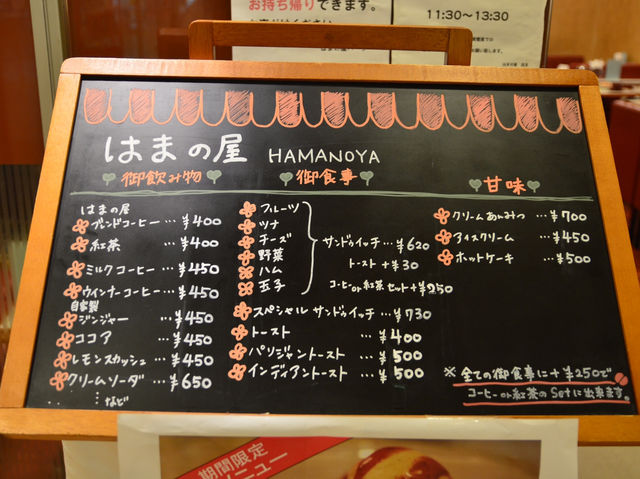 お持ち帰りできます。
11:30〜13:30
はまの屋 HAMANOYA
御飲み物
はまの屋
ブレンドコーヒー…¥400
紅茶 …¥400
ミルクコーヒー…¥450
ウインナーコーヒー…¥450
自家製
ジンジャー …¥450
ココア …¥450
レモンスカッシュ …¥450
クリームソーダ …¥650
…など
御食事
フルーツ
ツナ
チーズ
野菜
ハム
玉子
サンドゥイッチ…¥620
トースト+¥30
コーヒーor紅茶セット+¥250
スペシャルサンドゥイッチ…¥730
トースト … ¥400
パリジャントースト … ¥500
インディアントースト … ¥500
甘味
クリームあんみつ …¥700
アイスクリーム …¥450
ホットケーキ …¥500
※全ての御食事に+¥250で
コーヒーor紅茶のSetに出来ます。
期間限定
メニュー